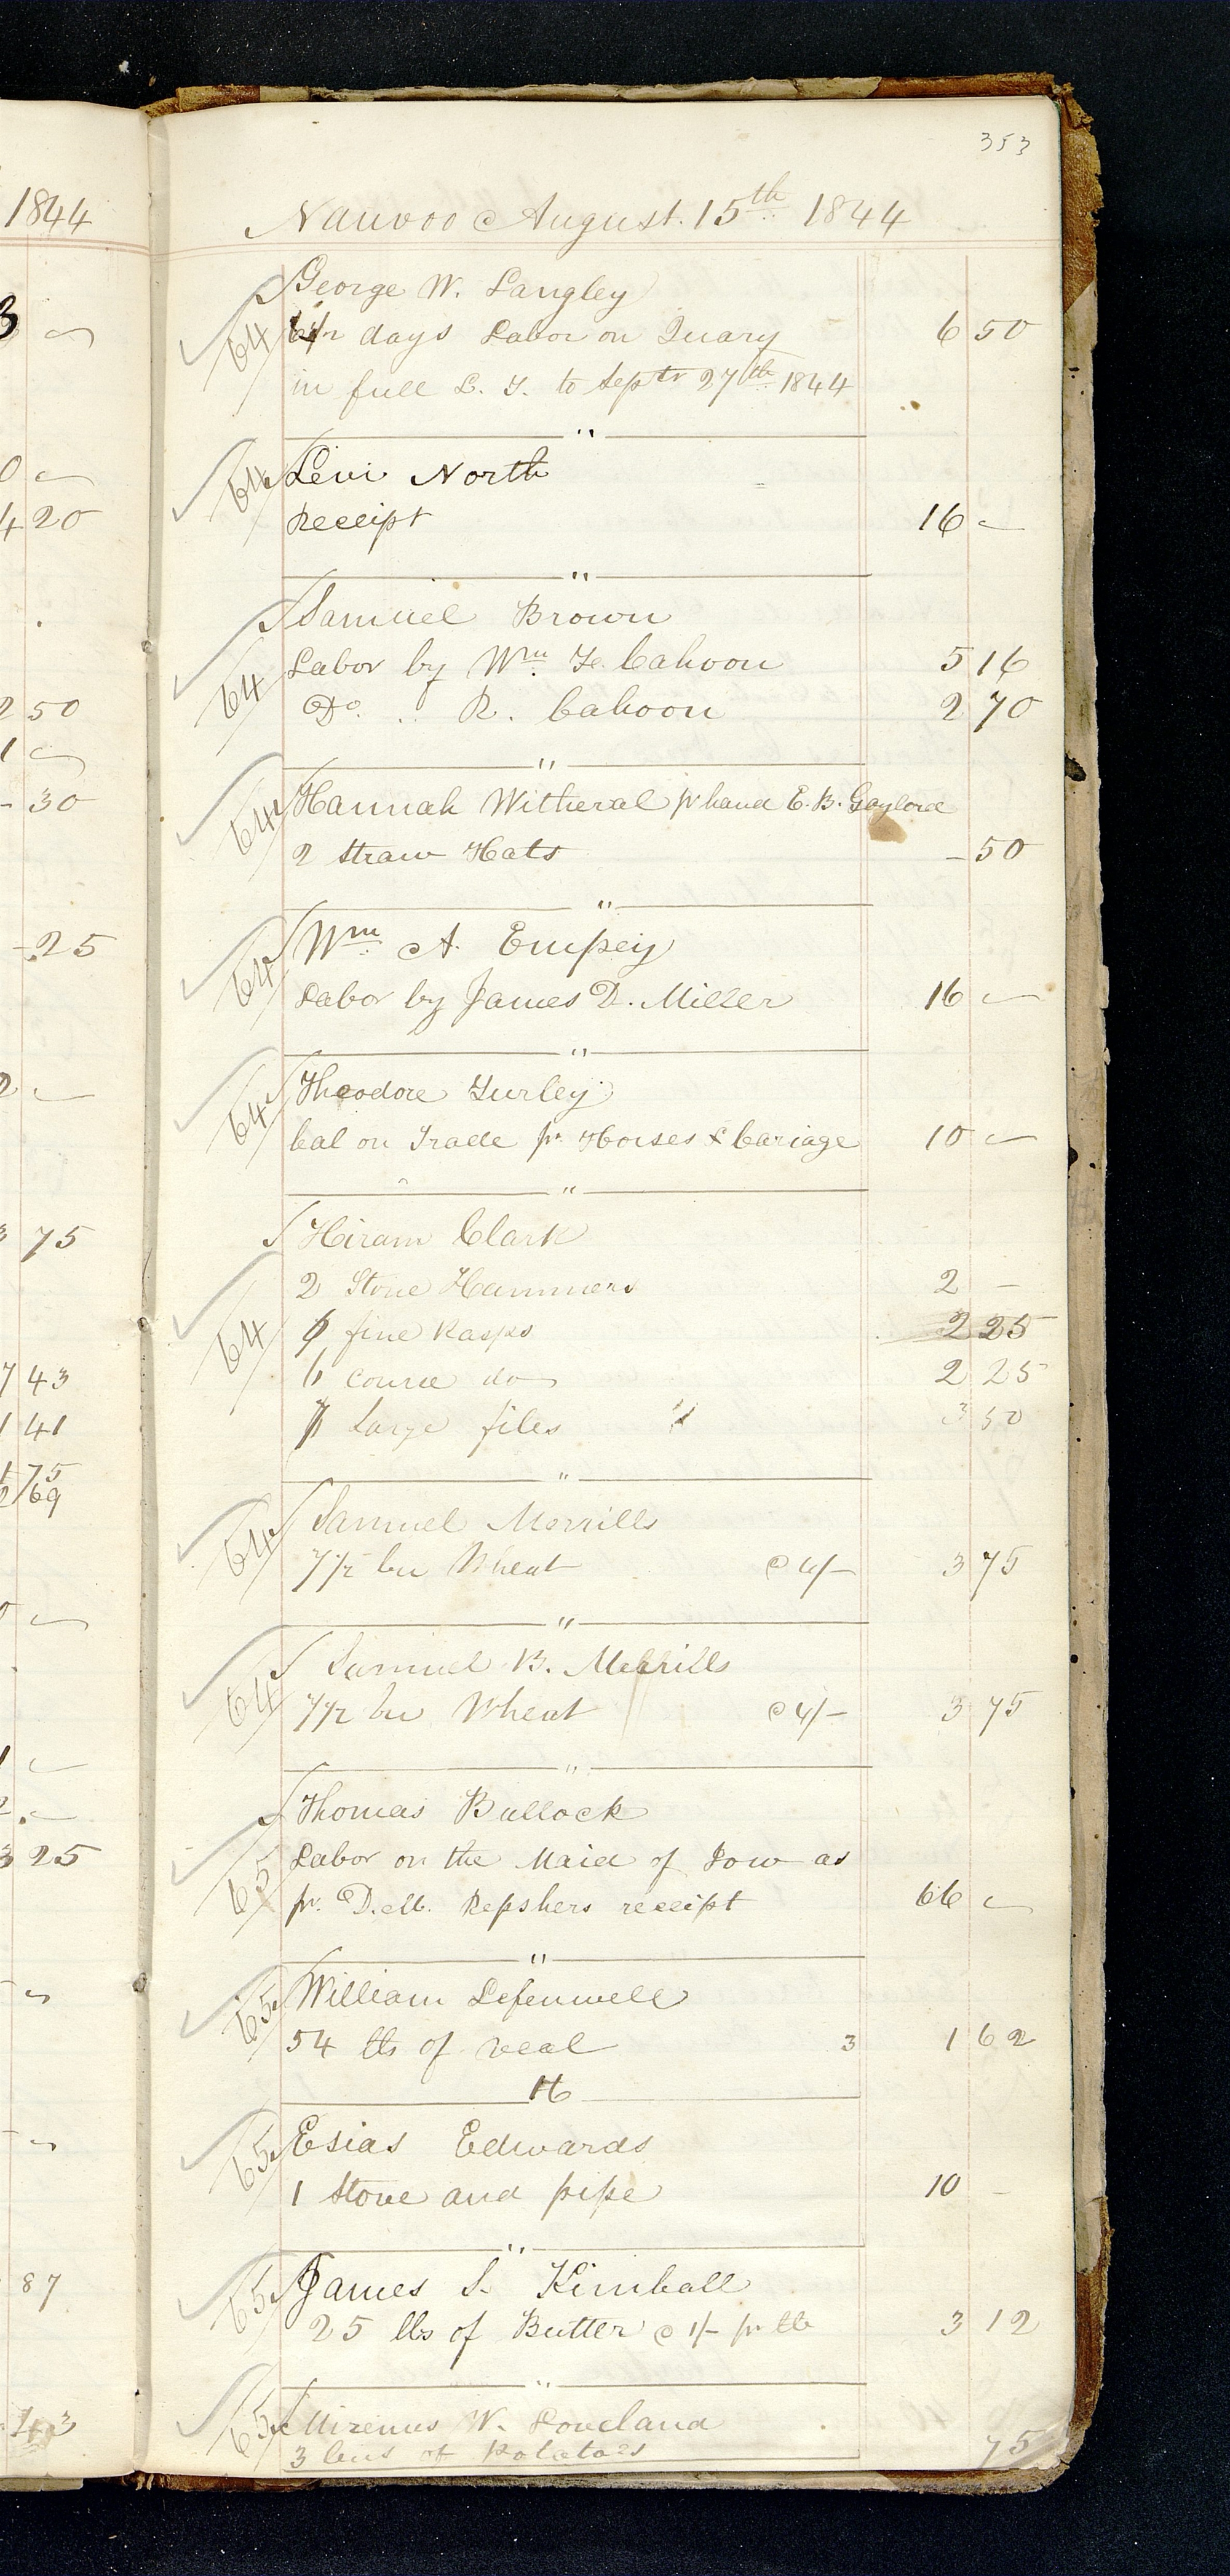 353
1844
Nauvoo August. 15th 1844
George W. Langley
64 6 1/2 days Labor on Quary 6 50
in full L. T. to Septr 27th 1844
"
64 Levi North
Receipt 16 -
"
Samuel Brown
64 Labor by Wm F. Cahoon 5 16
Do. . . R. Cahoon 2 70
"
64 Hannah Witheral pr hand E. B. Gaylord
2 Straw Hats - 50
"
64 Wm A. Empey
Labor by James D. Miller 16 -
"
64 Theodore Turley
bal on Trade pr Horses & Cariage 10 -
"
Hiram Clark
2 Stone Hammers 2 -
64 fine Rasps 2 25
6 course do 2 25
7 Large files " 3 50
"
64 Samuel Merrills
7 1/2 bu Wheat @ 4/- 3 75
"
64 Samuel B. Merrills
7 1/2 bu Wheat @ 4/- 3 75
"
Thomas Bullock
65 Labor on the Maid of Iow as
pr. D. M. Repshers receipt 66 -
"
65 William Lefenwell
54 lbs of veal 3 1 62
16
65 Esias Edwards
1 Stove and pipe 10 -
"
65 James S. Kimball
25 lbs of Butter @ 1/- pr lb 3 12
"
65 Mirenus W. Loveland
3 bus of Potatoes 75
3 -
0 -
4 20
2 50
1 -
- 30
- 25
2 -
3 75
7 43
1 41
1 75
2 69
0 -
1 -
2 -
3 25
87
43